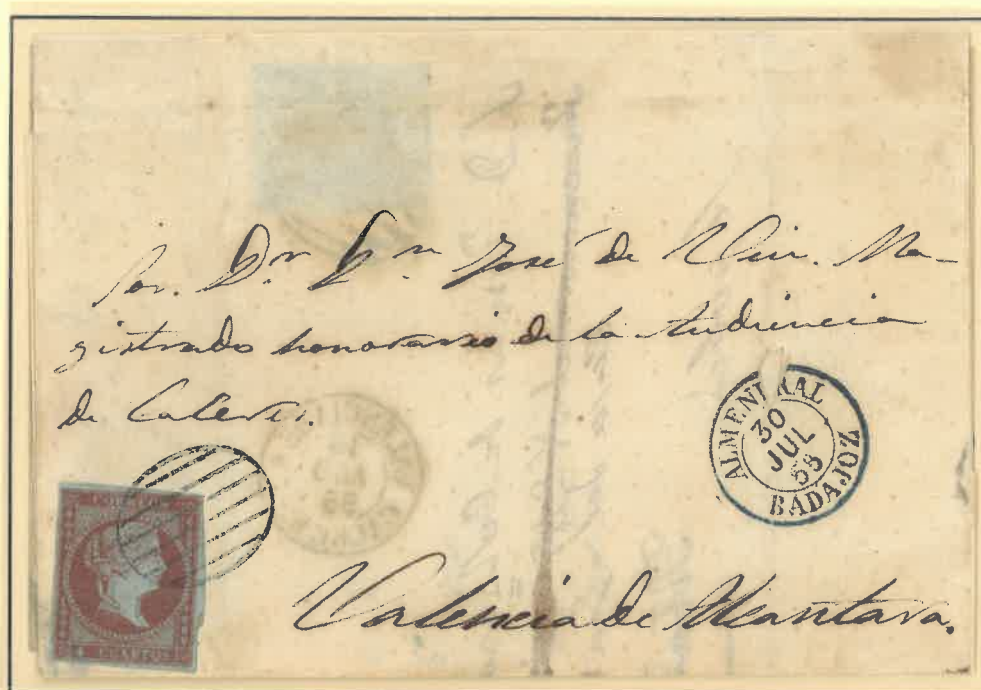 Sor. Dn. Dn. José de Viu. Ma-
gistrado honorario de la Audiencia
de Caceres.
ALMENDRAL
30
JUL
58
BADAJOZ
CORREOS
4 CUARTOS
Valencia de Alcantara.